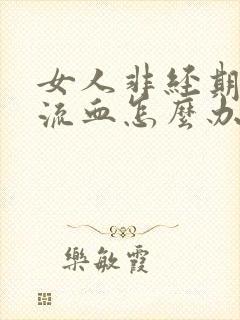 女人非经期
流血怎麽办
樂敏霞